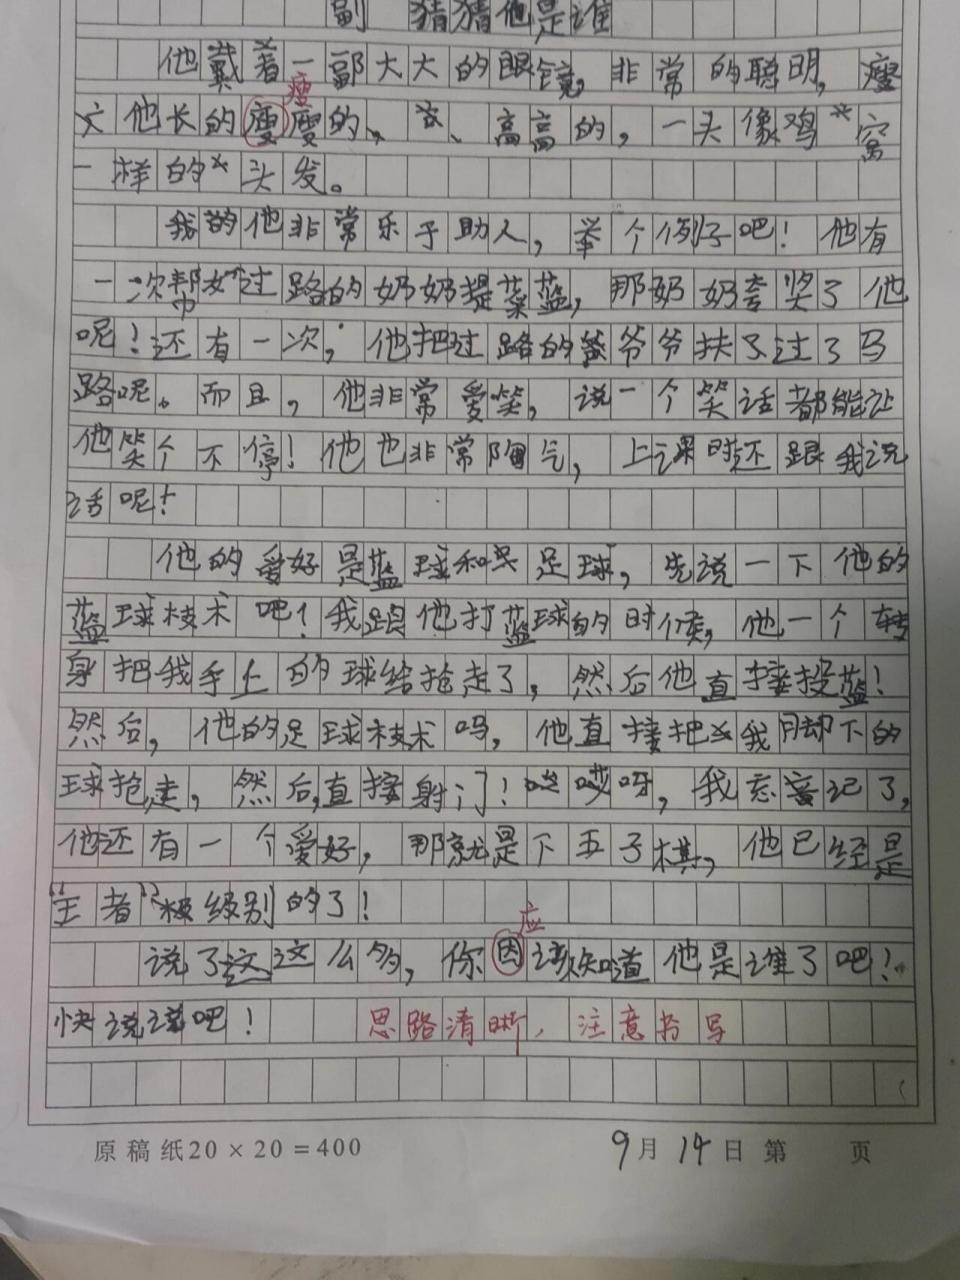 副 猜猜他是谁
他戴着一副大大的眼镜,非常的聪明,
瘦
他长的瘦瘦的、高高的,一头像鸡窝
一样的头发。
我的他非常乐于助人,举个例子吧!他有
一次帮过路的奶奶提菜蓝,那奶奶夸奖了他
呢!还有一次,他把过路的爷爷扶了过了马
路呢。而且,他非常爱笑,说一个笑话都能让
他笑个不停!他也非常陶气,上课时还跟我说
话呢!
他的爱好是蓝球和足球,先说一下他的
蓝球枝术吧!我跟他打蓝球的时候,他一个转
身把我手上的球给抢走了,然后他直接投蓝!
然后,他的足球枝术吗,他直接把我脚下的
球抢走,然后,直接射门!哎呀,我忘记了,
他还有一个爱好,那就是下五子棋,他已经是
“王者”级别的了!
应
说了这这么多,你因该知道他是谁了吧!
快说说吧! 思路清晰,注意书写
原稿纸20×20=400 9月14日第 页